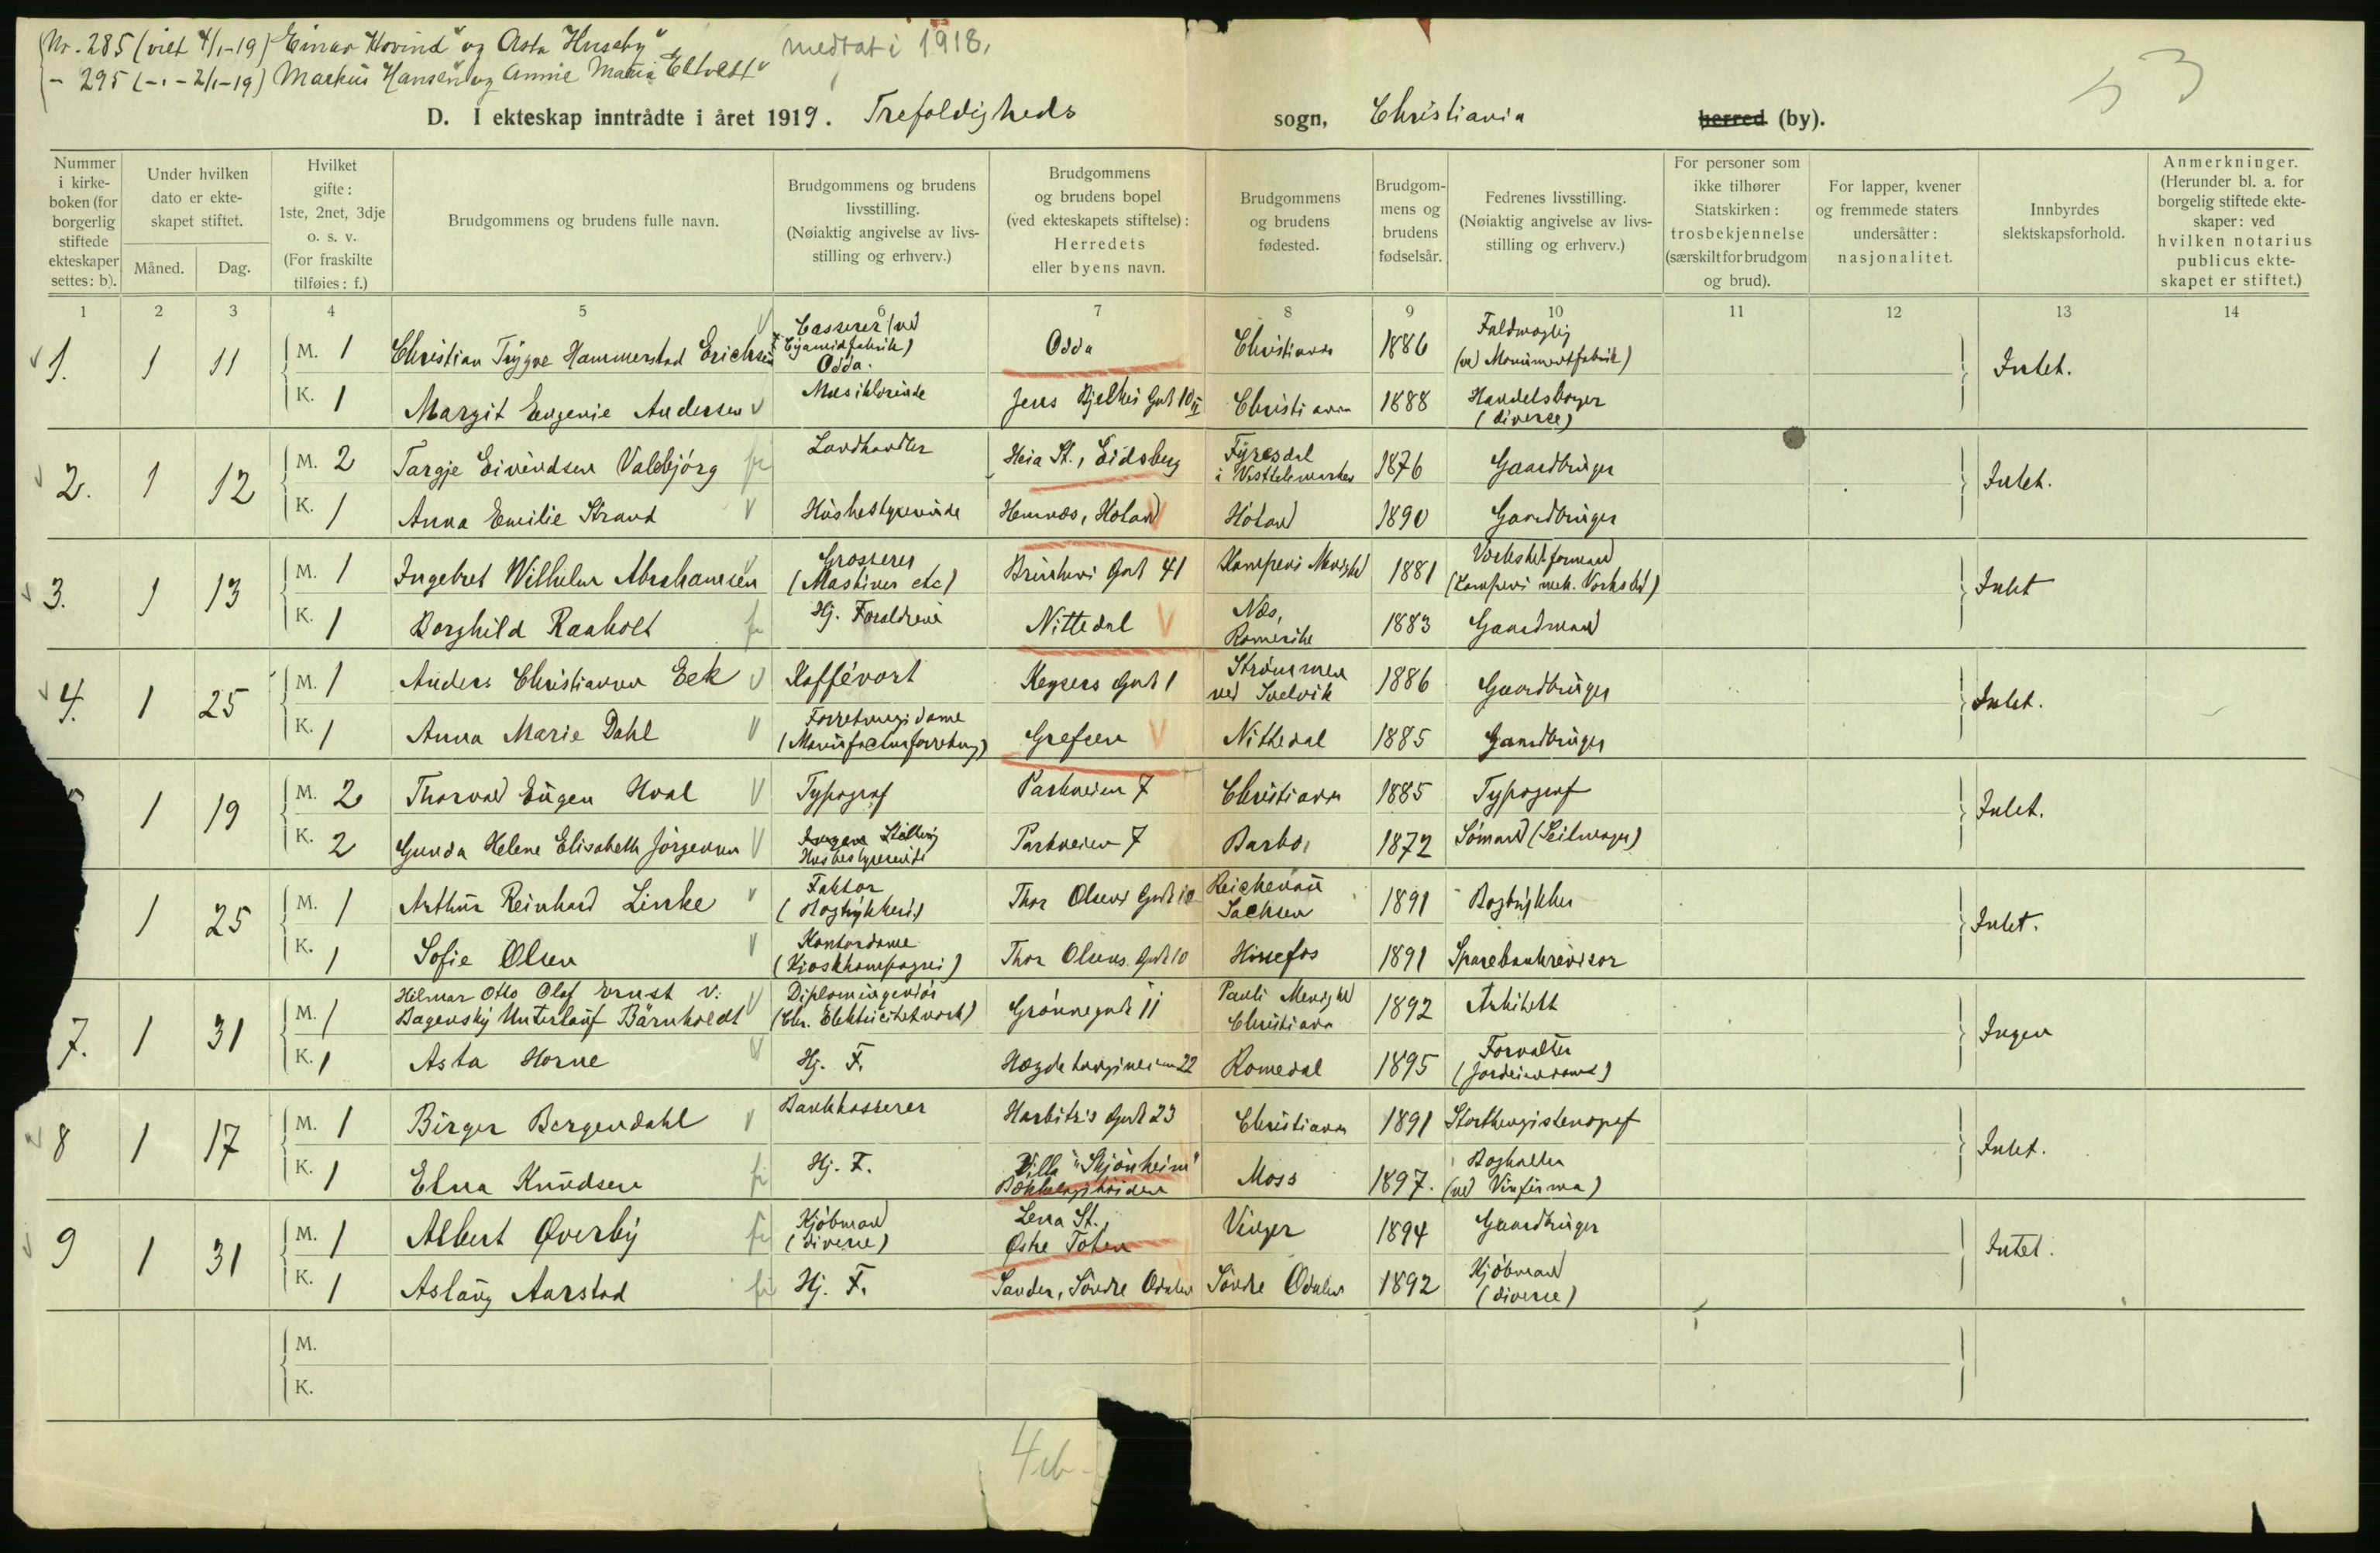 Nr. 285 (viet 4/1-19) Einar Hovind" og Asta Huseby" medtat i 1918.
- 295 (-"- 2/1-19) Markus Hansen" og Annie Maria Eltvedt"
53
D. I ekteskap inntrådte i året 1919. Trefoldigheds sogn, Christiania herred (by).
Nummer i kirkeboken (for borgerlig stiftede ekteskaper settes: b).
Under hvilken dato er ekteskapet stiftet.
Måned. Dag.
Hvilket gifte: 1ste, 2net, 3dje o. s. v. (For fraskilte tilføies: f.)
Brudgommens og brudens fulle navn.
Brudgommens og brudens livsstilling. (Nøiaktig angivelse av livsstilling og erhverv.)
Brudgommens og brudens bopel (ved ekteskapets stiftelse): Herredets eller byens navn.
Brudgommens og brudens fødested.
Brudgommens og brudens fødselsår.
Fedrenes livsstilling. (Nøiaktig angivelse av livsstilling og erhverv.)
For personer som ikke tilhører Statskirken: trosbekjennelse (særskilt for brudgom og brud).
For lapper, kvener og fremmede staters undersåtter: nasjonalitet.
Innbyrdes slektskapsforhold.
Anmerkninger. (Herunder bl. a. for borgelig stiftede ekteskaper: ved hvilken notarius publicus ekteskapet er stiftet.)
1 2 3 4 5 6 7 8 9 10 11 12 13 14
1. 1 11 M. 1 Christian Trygve Hammerstad Erichsen Casserer (ved Cyamidfabrik) Odda. Odda Christiania 1886 (ved Monumentfabrik) Intet.
K. 1 Margit Eugenie Andersen Musiklærinde Jens Bjelkes Gate 10 II Christiania 1888 Handelsborger (diverse)
2. 1 12 M. 2 Targje Eivindsen Valebjørg Landhandler Heia St., Eidsberg Fyresdal i Vesttelemarken 1876 Gaardbruger Intet.
K. 1 Anna Emilie Strand Husbestyrerinde Hemnæs, Høland Høland 1890 Gaardbruger
3. 1 13 M. 1 Ingebret Wilhelm Abrahamsen Grosserer (Maskiner etc) Brinkens Gate 41 Kampens Menighed 1881 Værkstedformand (Kampens mek. Værksted) Intet
K. 1 Borghild Raaholt Hj. Forældrene Nittedal Næs, Romerike 1883 Gaardmand
4. 1 25 M. 1 Anders Christiansen Eek Kaffévært Keysers Gate 1 Strømmen ved Svelvik 1886 Gaardbruger Intet.
K. 1 Anna Marie Dahl Forretningsdame (Manufakturforretning) Grefsen Nittedal 1885 Gaardbruger
1 19 M. 2 Thorvald Eugen Hval Typograf Parkveien 7 Christiania 1885 Typograf Intet.
K. 2 Gunda Helene Elisabeth Jørgensen Ingen Stilling Husbestyrerinde Parkveien 7 Barbo, 1872 Sømand (Seilmager)
1 25 M. 1 Arthur Reinhard Linke Faktor (Bogtrykkeri) Thor Olsens Gate 10 Reichenau Sachsen 1891 Bogtrykker Intet.
K. 1 Sofie Olsen Kontordame (Kioskkompagni) Thor Olsens Gate 10 Hønefos 1891 Sparebankrevisor
7. 1 31 M. 1 Hilmar Otto Olaf Ernst v. Bagensky Unterlauf Bärnholdt Diplomingeniør (Chr. Elektricitetværk) Grønnegate 11 Pauli Menighed Christiania 1892 Arkitekt Ingen
K. 1 Asta Horne Hj. F. Hægdehaugsveien 22 Romedal 1895 Forvalter (Jordeiendoms)
8 1 17 M. 1 Birger Bergendahl Bankkasserer Harbitz's Gate 23 Christiania 1891 Storthingsstenograf Intet.
K. 1 Elna Knudsen Hj. F. Villa "Skjønheim" Bækkelagshøiden Moss 1897. Bogholder (ved Vinfirma)
9 1 31 M. 1 Albert Øverby Kjøbmand (diverse) Lena St., Østre Toten Vinger 1894 Gaardbruger Intet.
K. 1 Aslaug Aarstad Hj. F. Sander, Søndre Odalen Søndre Odalen 1892 Kjøbmand (diverse)
M.
K.